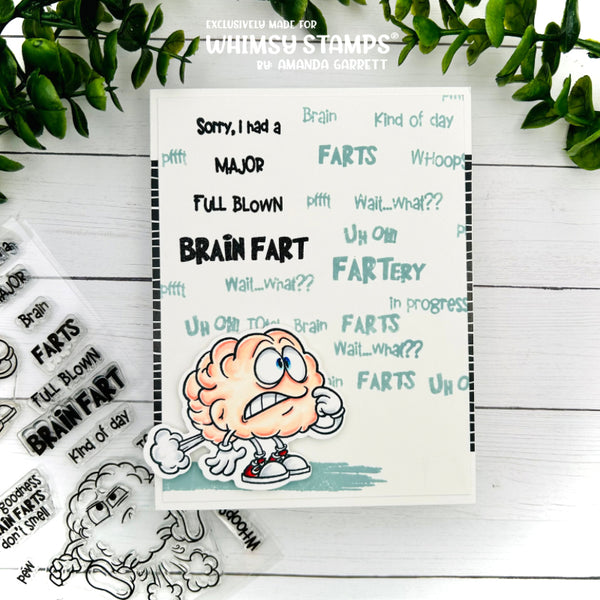 EXCLUSIVELY MADE FOR
WHIMSY STAMPS®
By: AMANDA GARRETT
Sorry, i had a
MAJOR
FULL BLOWN
BRAIN FART
Brain
Kind of day
pffft
FARTS
WHOOPS
pffft
Wait...what??
UH OH!
FARTERY
pffft
Wait...what??
in progress
UH OH!
TOTAL
Brain
FARTS
Wait...what??
FARTS
UH O
MAJOR
Brain
FARTS
FULL BLOWN
BRAIN FART
Kind of day
goodness
BRAIN FARTS
don't smell
pew
WHOOPS